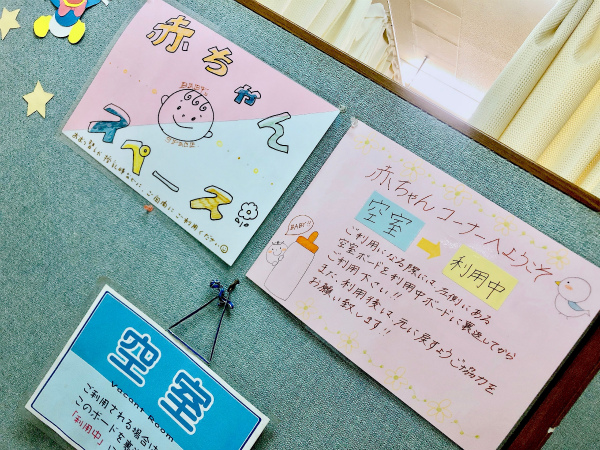 赤ちゃん
スペース
おむつ替えや授乳時などに、ご自由にご利用ください
赤ちゃんコーナーへようこそ
空室
利用中
BABY
ご利用になる際には、左側にある
空室ボードを利用中ボードに裏返してから
ご利用下さい!!
また、利用後は、元に戻すようご協力を
お願い致します!!
空室
Vacant Room
ご利用される場合は
このボードを裏
「利用中」に